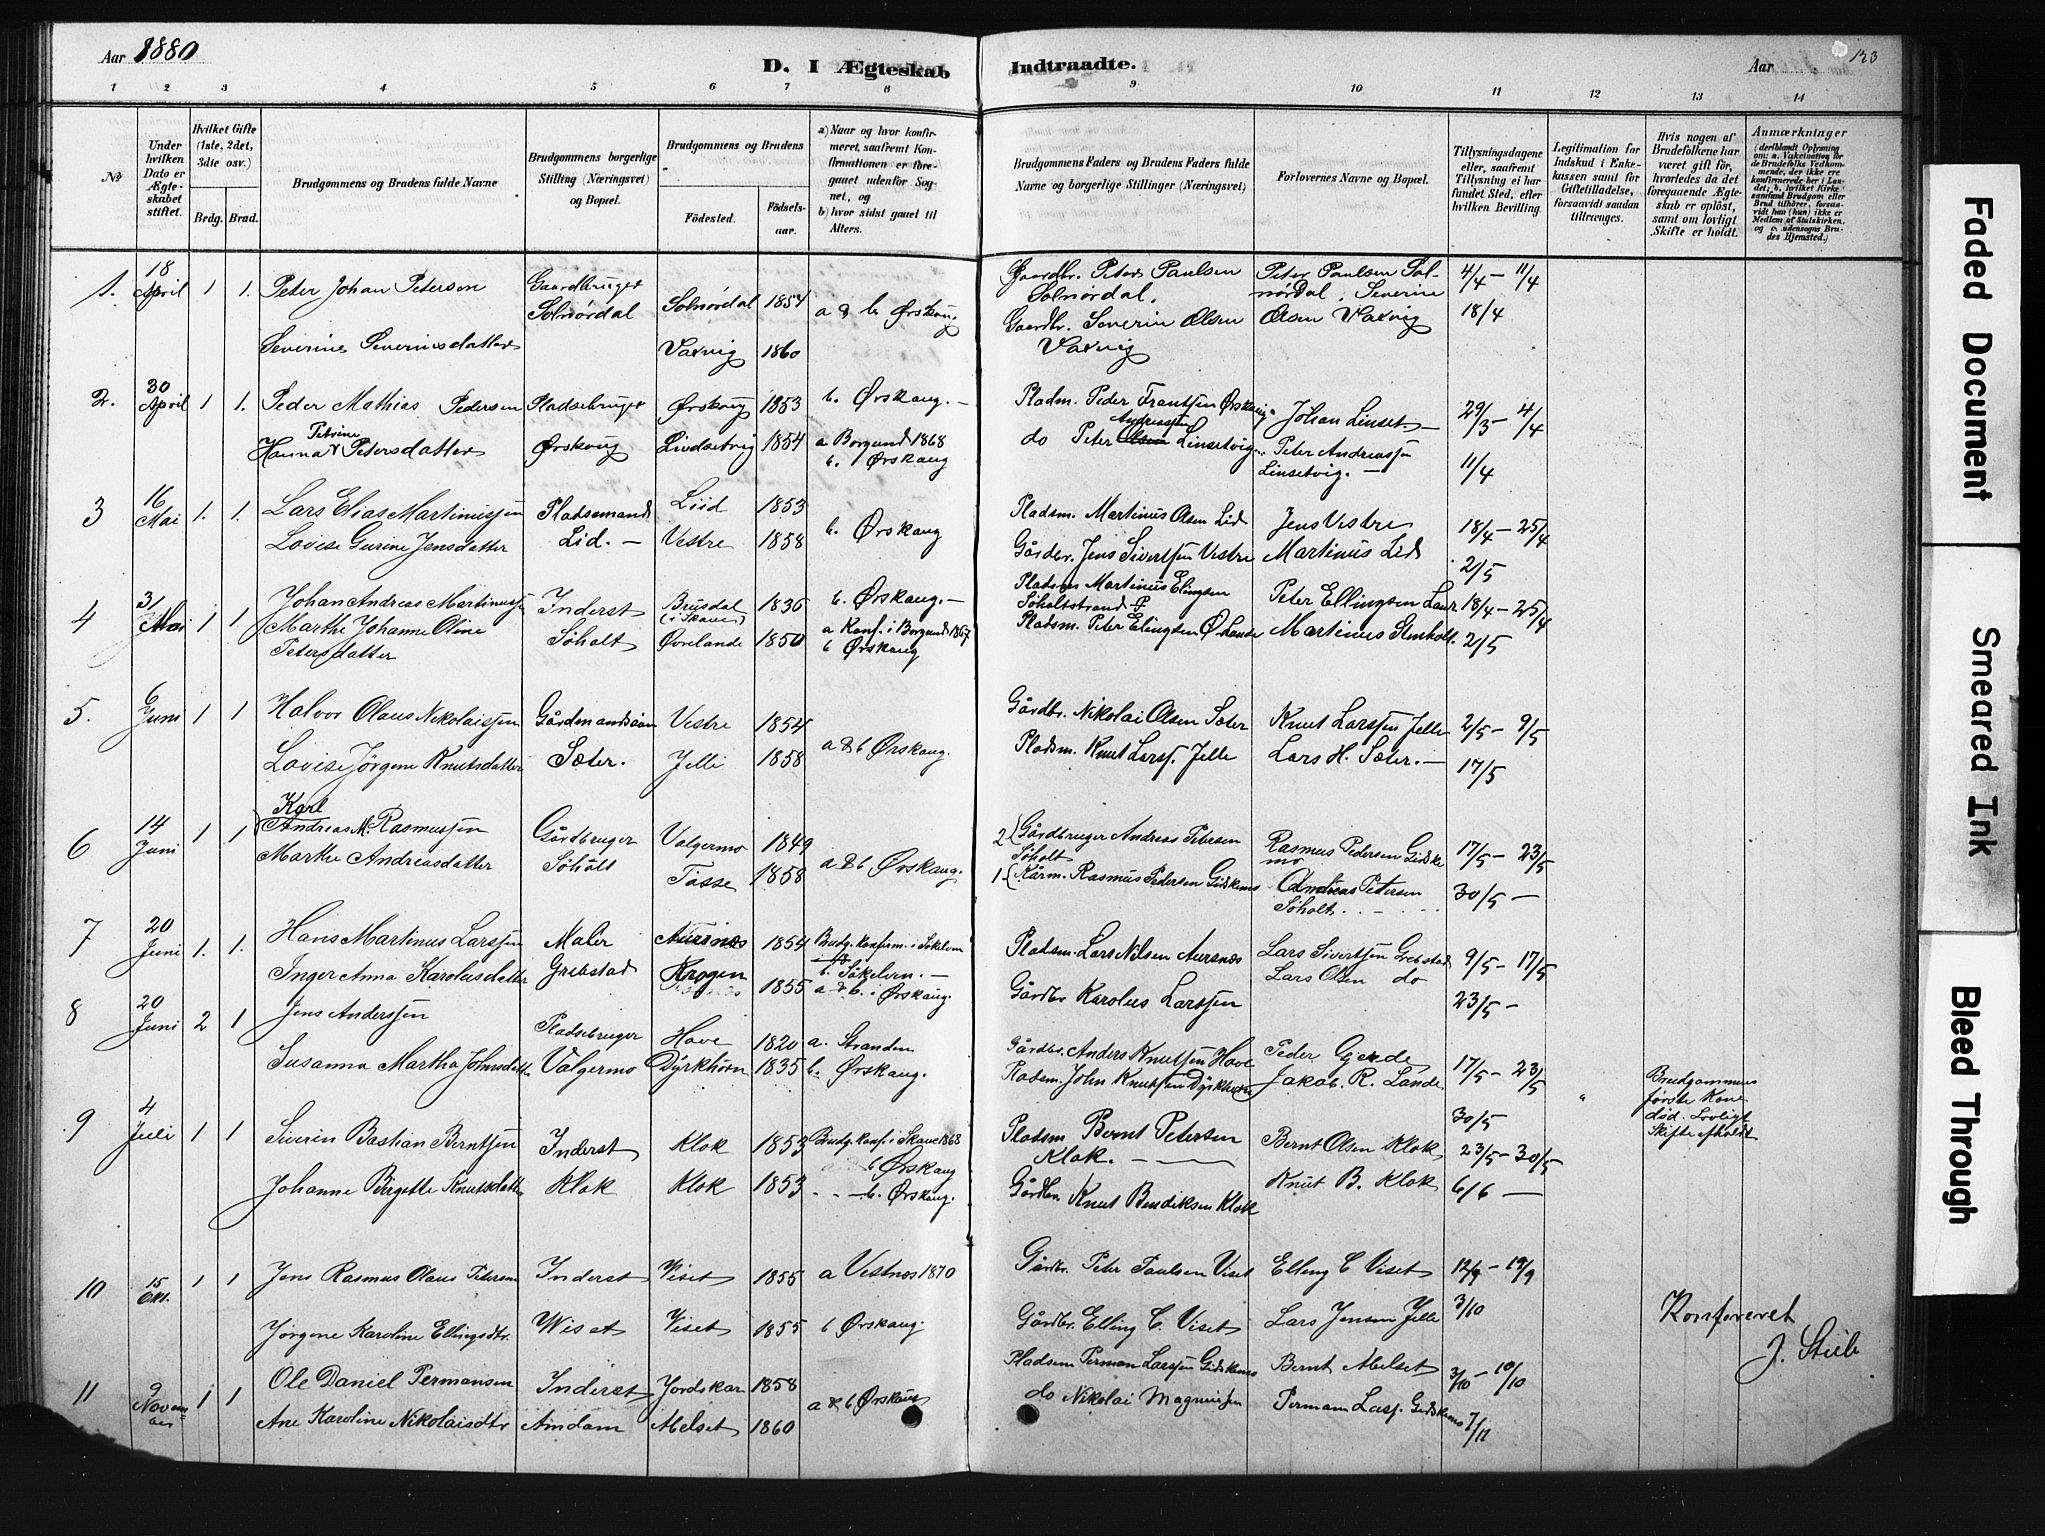 Aar 1880
D. I Ægteskab Indtraadte.
Aar 123
1 2 3 4 5 6 7 8 9 10 11 12 13 14
No
Under hvilken Dato er Ægteskabet stiftet.
Hvilket Gifte (1ste, 2det, 3die osv.)
Brdg. Brud.
Brudgommens og Brudens fulde Navne
Brudgommens borgerlige Stilling (Næringsvei) og Bopæl.
Brudgommens og Brudens
Födested. Födselsaar.
a) Naar og hvor konfirmeret, saafremt Konfirmationen er foregaaet udenfor Sognet, og
b) hvor sidst gaaet til Alters.
Brudgommens Faders og Brudens Faders fulde Navne og borgerlige Stillinger (Næringsvei)
Forlovernes Navne og Bopæl.
Tillysningsdagene eller, saafremt Tillysning ei har fundet Sted, efter hvilken Bevilling.
Legitimation for Indskud i Enkekassen samt for Giftetilladelse, forsaavidt saadan tiltrænges.
Hvis nogen af Brudefolkene har været gift för, hvorledes da det foregaaende Ægteskab er oplöst, samt om lovligt Skifte er holdt.
Anmærkninger
1. 18 April 1 1. Peter Johan Peterson Gaardbruger Solnørdal Solnørdal 1854 a & b Ørskoug
Gaardbr. Peter Paulsen Solnørdal. Peter Paulsen Solnørdal. Severin 4/4 – 11/4
Severine Severinesdatter Vaxvig 1860
Gaardbr. Severin Olsen Vaxvig Olsen Vaxvig 18/4
2. 30 April 1 1. Peder Mathias Pedersen Pladsebruger Ørskoug 1853 b. Ørskaug. –
Pladm. Peder Frantsen Ørskoug Johan Linset – 29/3 – 4/4
Hanna Petrine Petersdatter Ørskoug Lindsetvig 1854 a Borgund 1868 b. Ørskaug
do Peter Olsen Andreassen Linsetvig Peter Andreassen Linsetvig. – 11/4
3 16 Mai 1. 1. Lars Elias Martinussen Pladsemand Liid 1853 b. Ørskaug
Pladsm. Martinus Olsen Lid Jens Vestre 18/4 – 25/4
Lovise Gurine Jensdatter Lid. – Vestre 1858
Gårdbr. Jens Sivertsen Vestre Martinus Lid 2/5
4 31 Mai 1 1 Johan Andreas Martinussen Inderst Brusdal (i Skaue) 1836 b. Ørskaug. –
Pladsm Martinus Elingsen Søholtstrand Peter Ellingsen Lande 18/4 – 25/4
Marthe Johanne Oline Petersdatter Søholt Øvrelande 1850 a Konf. i Borgund 1867 b Ørskaug
Pladsm. Peter Elingsen Ø Lande Martinus 2/5
5. 6 Juni 1 1 Halvor Olaus Nikolaissen Gårdmandssøn Vestre 1854 a & b Ørskaug.
Gårdbr. Nikolai Olsen Sæter Knut Larssen Jelle 2/5 – 9/5
Lovise Jörgene Knutsdatter Sæter. Jelle 1858
Pladsm. Knut Larss. Jelle Lars H. Sæter. – 17/5
6 14 Juni 1 1 Karl Andreas M. Rasmussen Gårdbruger Valgermo 1849 a & b Ørskaug.
2 Gårdbruger Andreas Petersen Søholt Rasmus Pedersen Gidskemo 17/5 – 23/5
Marthe Andreasdatter Søholt Tosse 1858
1 Kårm. Rasmus Pedersen Gidskemo Andreas Petersen Søholt. 30/5 –
7 20 Juni 1. 1. Hans Martinus Larssen Maler Aursnes 1854 Brudg. konfirm. i Søkelven b. Søkelven. –
Pladsm. Lars Nilsen Aursnes Lars Sivertsen Grebstad 9/5 – 17/5
Inger Anna Karolusdatter Grebstad Krogen 1855 a & b. i Ørskaug.
Gårdbr Karolus Larssen Lars Olsen do 23/5 –
8 20 Juni 2 1 Jens Anderssen Pladsebruger Hove 1820 a. Stranden
Gårdbr. Anders Knutsen Hove Peder Gjerde 17/5 – 23/5
Susanna Martha Johnsdatter Valgermo Dyrkhorn 1835 b. Ørskaug.
Pladsm. John Knutsen Dyrkhorn Jakob. R. Lande 30/5
Brudgommens første Kone død. Lovligt Skifte afholdt
9 4 Juli 1 1 Siverin Bastian Berntsen Inderst Klok 1853 Brudg. konf. i Skaue 1868 b Ørskaug
Pladsm Bernt Petersen Klok. – Bernt Olsen Klok 23/5 – 30/5
Johanne Birgette Knutsdatter Klok Klok 1853 – b. Ørskaug.
Gårdbr. Knut Bendiksen Klok Knut B. Klok 6/6 –
10 15 Okt. 1 1 Jens Rasmus Olaus Petersen Inderst Viset 1855 a Vestnes 1870
Gårdbr. Peter Paulsen Viset Elling C Viset 12/9 – 19/9
Jörgene Karoline Ellingsdtr. Wiset Viset 1855 b Ørskaug.
Gårdbr. Elling C. Viset Lars Jensen Jelle 3/10
Konfereret
J. Stub
11 9 November 1 1 Ole Daniel Permansen Inderst Jordskar 1858 a & b Ørskaug
Pladsm Perman Larssen Gidskemo Bernt Melset 3/10 – 10/10
Ane Karoline Nikolaisdtr Amdam Melset 1860
do Nikolai Magnussen Permann Lass. Gidskemo 7/11
Faded Document
Smeared Ink
Bleed Through